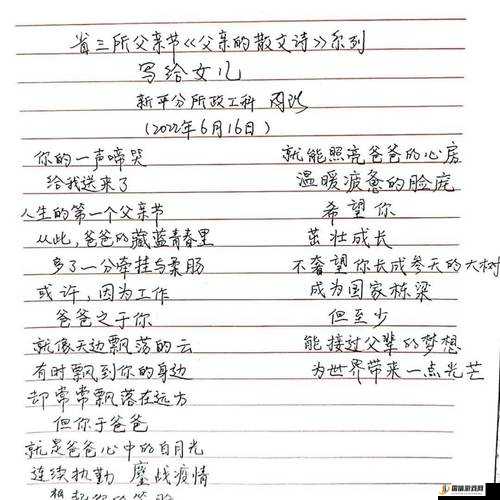 省三所父亲节《父亲的散文诗》系列
写给女儿
新平分所政工科
(2022年6月16日)
你的一声啼哭
给我送来了
人生的第一个父亲节
从此,爸爸的藏蓝青春里
多了一分牵挂与柔肠
或许,因为工作
爸爸之于你
就像天边飘落的云
有时飘到你的身边
却常常飘落在远方
但你于爸爸
就是爸爸心中的白月光
连续执勤 鏖战疫情
就能照亮爸爸的心房
温暖疲惫的脸庞
希望你
茁壮成长
不奢望你长成参天的大树
成为国家栋梁
但至少
能接过父辈的梦想
为世界带来一点光芒